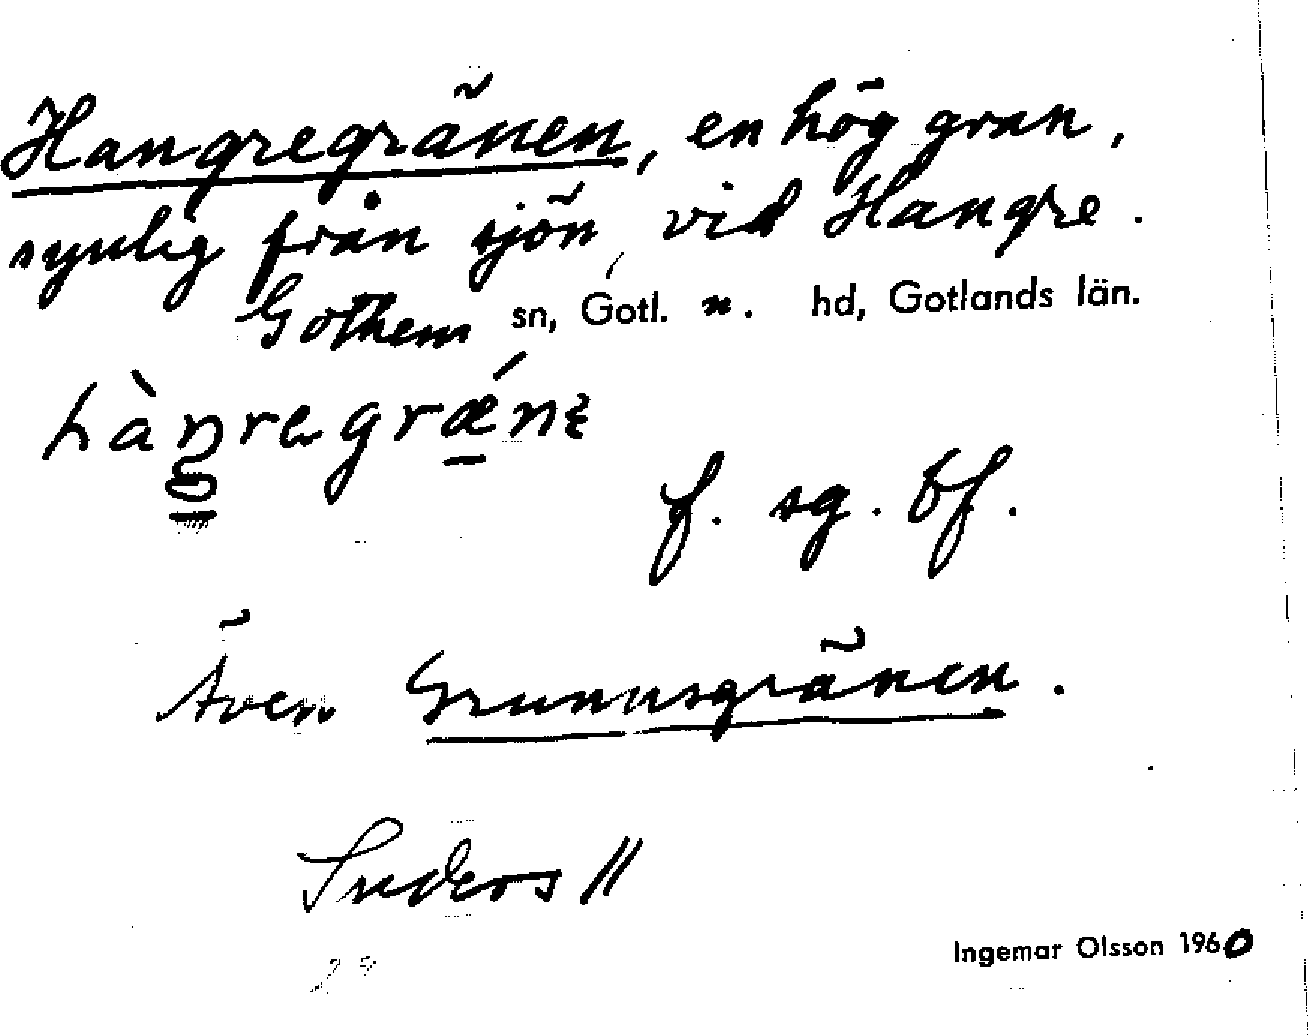 Hangregränen, en hög gran,
synlig från sjön, vid Hangre.
Gothem sn, Gotl. n. hd, Gotlands län.
hàŋregrǽnɛ
f. sg. bf.
Även Grunnsgränen.
Suders //
Ingemar Olsson 1960